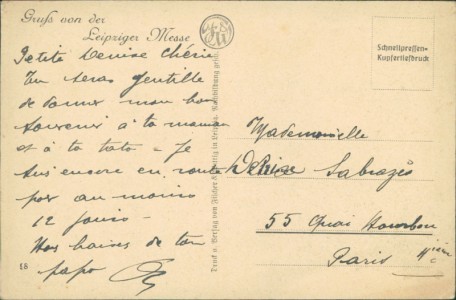 Gruß von der
Leipziger Messe
Schnellpressen-
Kupfertiefdruck
Petite Denise Chérie
Tu seras gentille
de donner mon bon
souvenir à ta maman
et à ta tata - Je
suis encore en route
par au moins
12 jours -
Bons baisers de ton
papa
Mademoiselle
Denise Sabrazès
55 Quai Bourbon
Paris
18
Druck u. Verlag von
Leipzig. Nachbildung